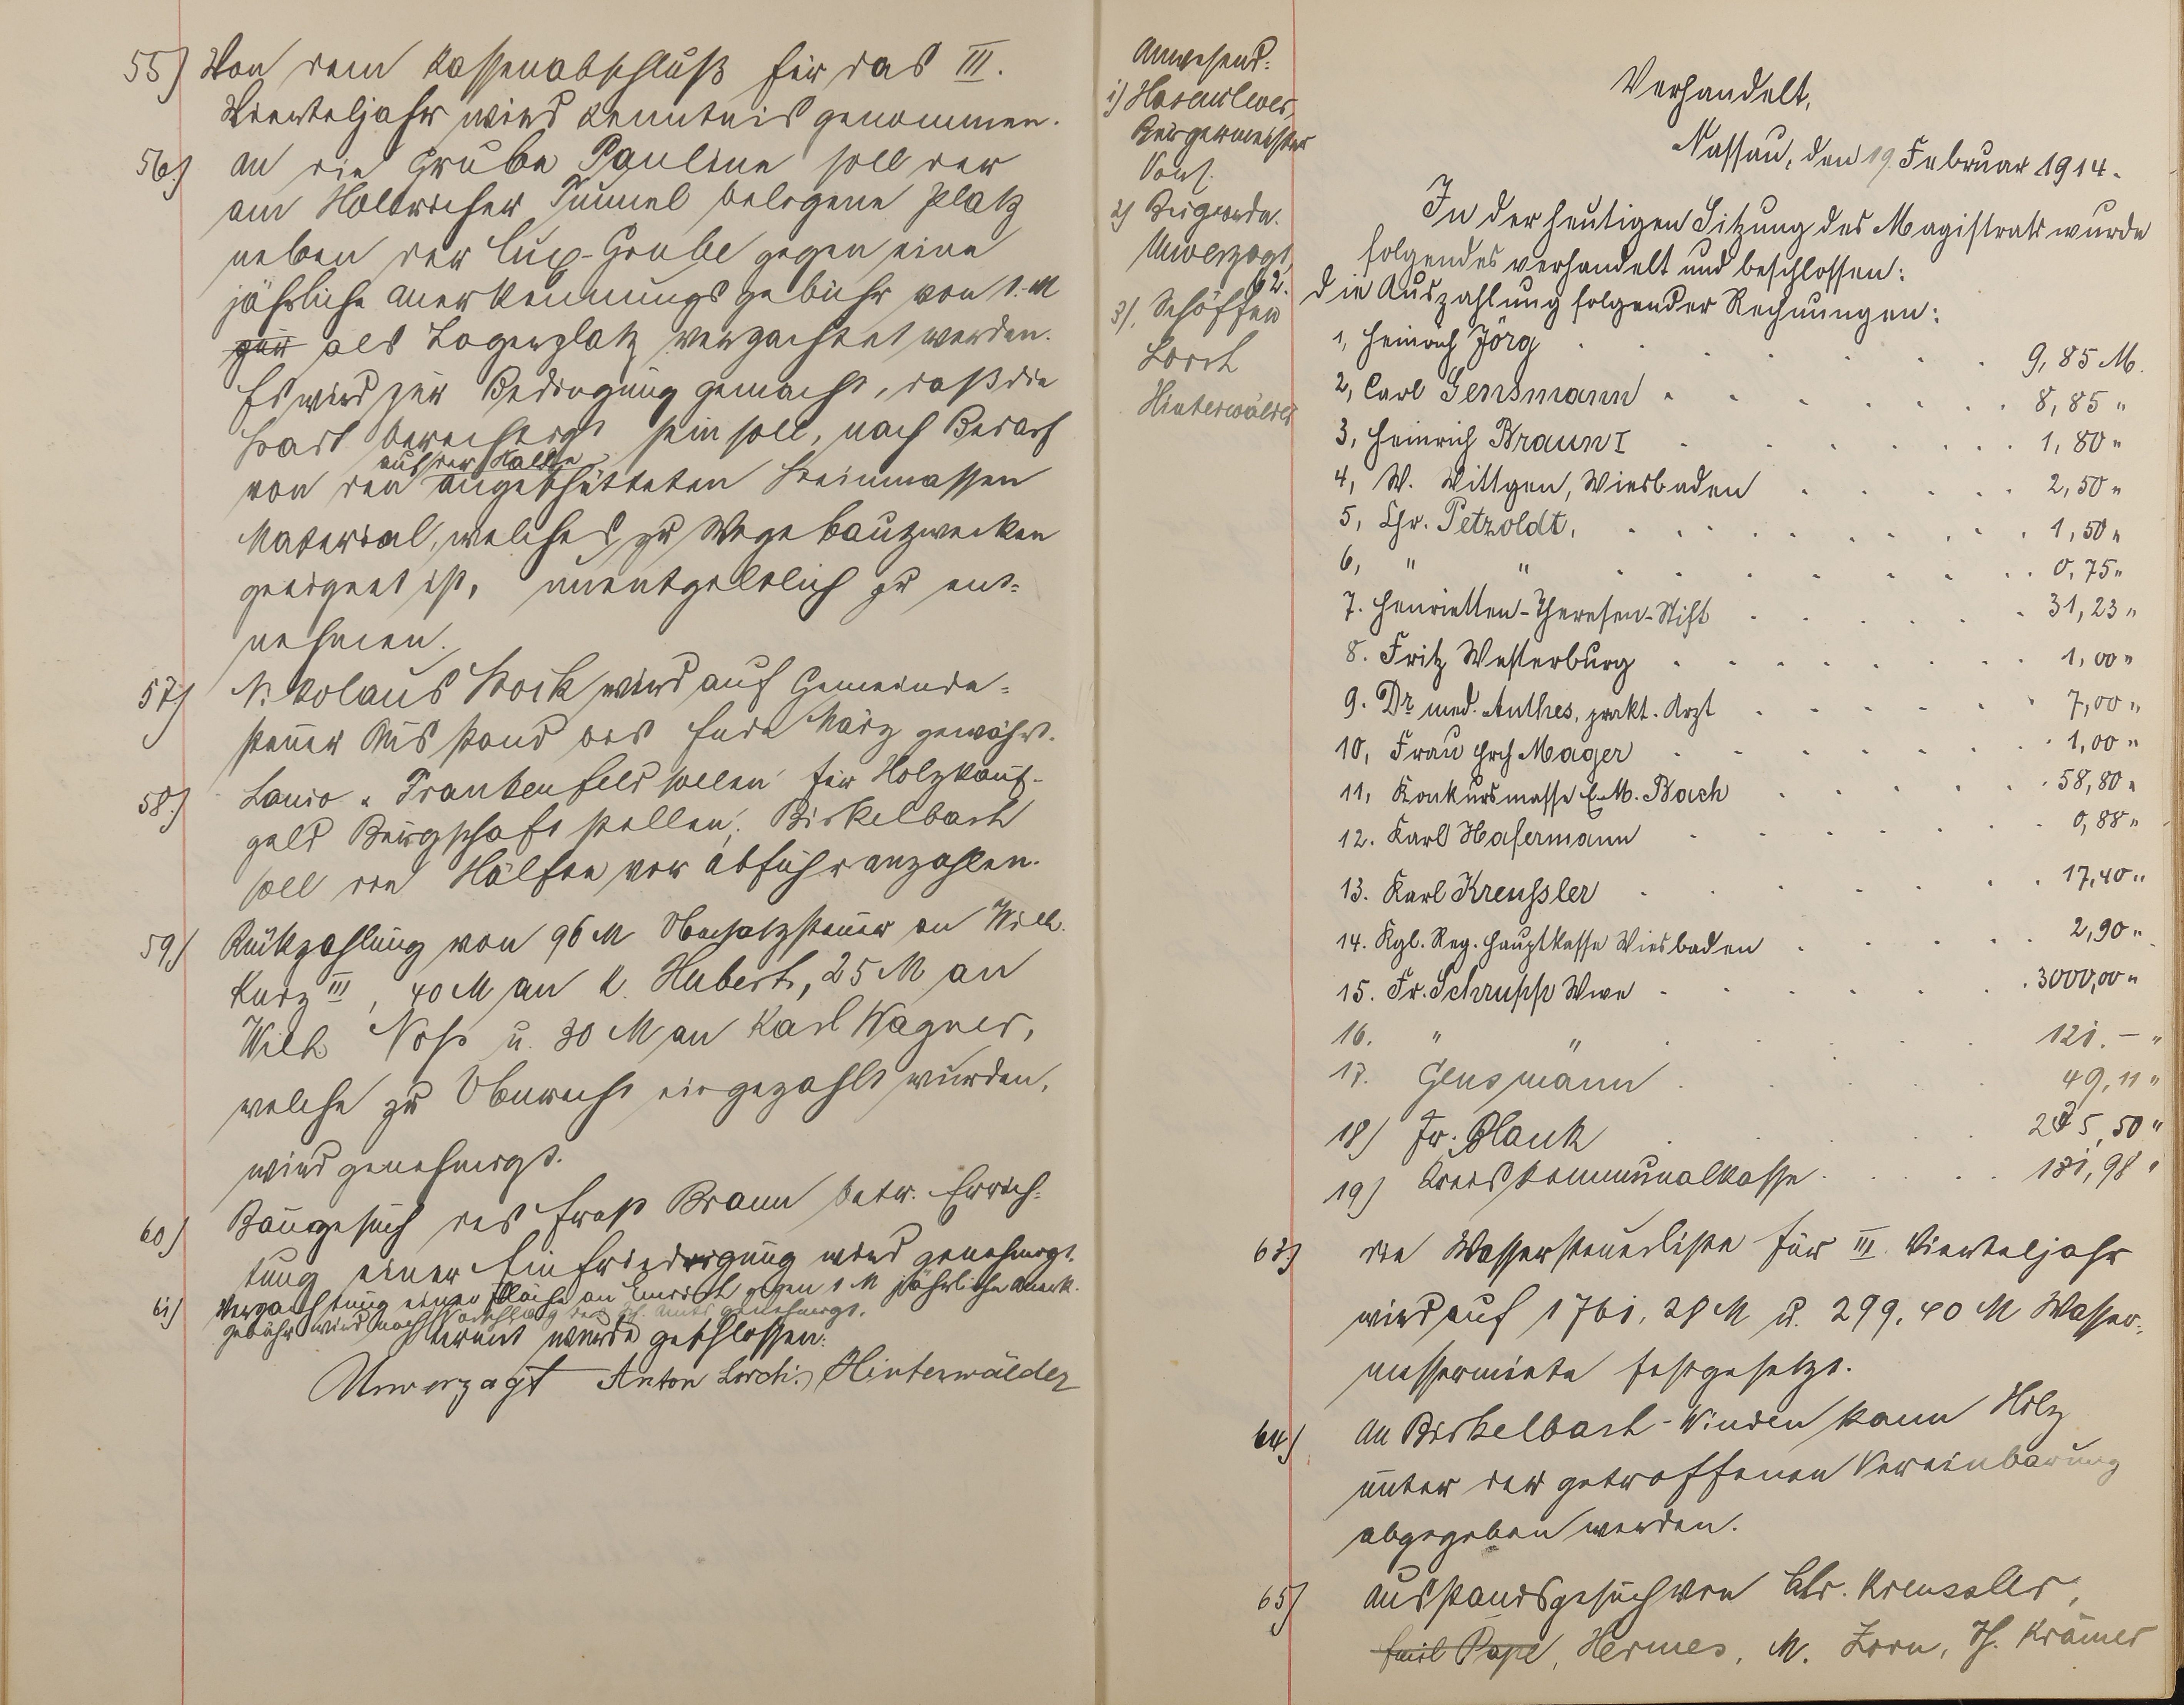 55) Von dem Kassenabschluß für das III.
Vierteljahr wird Kenntnis genommen.
56) An die Grube Pauline soll der
am Hollericher Tunnel belegene Platz
neben der Lux-Grube gegen eine
jährliche Anerkennungsgebühr von 1.- M
als Lagerplatz verpachtet werden.
Es wird zur Bedingung gemacht, daß die
Stadt berechtigt sein soll, nach Bedarf
auf der Halde
von den angeschütteten Steinmassen
Material, welches zu Wegebauzwecken
geeignet ist, unentgeltlich zu ent-
nehmen.
57) Nikolaus Stock wird auf Gemeinde-
steuer Ausstand bis Ende März gewährt.
58.) Frankenfeld sollen für Holzkauf-
geld Bürgschaft stellen; Birkelbach
soll die Hälfte vor Abfuhr anzahlen.
59.) Rückzahlung von 96 M Umsatzsteuer an Wilh.
Kurz III, 40 M an K. Hubert, 25 M an
Wilh. Noss u. 30 M an Karl Wagner,
welche zu Unrecht eingezahlt wurden,
wird genehmigt.
60) Baugesuch des Ernst Braun betr. Errich-
tung einer Einfriedigung wird genehmigt.
61) Verpachtung einer Fläche an gegen 1 M jährliche Anerk.
gebühr wird nach Vorschlag des genehmigt.
womit wurde geschlossen:
Unverzagt Anton Lorch. Hinterwälder
Anwesend:
1) Hasenclever,
Bürgermeister
Vors.
2) Beigeordn.
Unverzagt,
3), Schöffen
Lorch
Hinterwälder
Verhandelt,
Nassau, den 19. Februar 1914.
In der heutigen Sitzung des Magistrats wurde
folgendes verhandelt und beschlossen:
62. Die Auszahlung folgender Rechnungen:
1, Heinrich Jörg . . . . . 9,85 M.
2, Carl Gensmann . . . . . 8,85 "
3, Heinrich Braun I . . . . . 1,80 "
4, W. Wittgen, Wiesbaden . . . . . 2,50 "
5, Chr. Petzoldt, . . . . . 1,50 "
6, " " . . . . . 0,75 "
7. Henrietten-Theresen-Stift . . . . . 31,23 "
8. Fritz Westerburg . . . . . 1,00 "
9. Dr. med. Anthes, prakt. Arzt . . . . . 7,00 "
10, Frau Hrch Mager . . . . . 1,00 "
11, Konkursmasse E. M. Bach . . . . . 58,80 "
12. Karl Hafermann . . . . . 0,88 "
13. Karl Kreussler . . . . . 17,40 "
14. Kgl. Reg. Hauptkasse Wiesbaden . . . . . 2,90 "
15. Fr. Schrupp Wwe . . . . . 3000,00 "
16. " " . . . . . 121.- "
17. Gensmann . . . . . 49,11 "
18) Fr. Blank . . . . .
19) Kreiskommunalkasse . . . . . 131,98 "
63) Die Wassersteuerliste für III. Vierteljahr
wird auf 1761,28 M u. 299,40 M Wasser-
messermiete festgesetzt.
64) An Birkelbach-Winden kann Holz
unter der getroffenen Vereinbarung
abgegeben werden.
65) Ausstandsgesuch von Chr. Kreussler,
Emil Pape, Hermes, M. Zorn, Th. Krämer